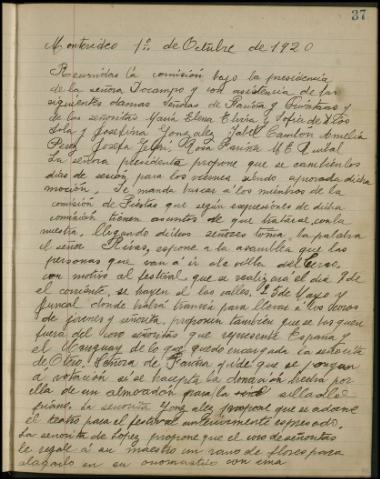 37
Montevideo 1º de Octubre de 1920
Reunidas la comisión bajo la presidencia
de la señora Ocampo y con asistencia de las
siguientes damas Señoras de Fariña y
de las señoritas María Elena Elvira y Sofía de
Lola y Josefina Gonzalez Isabel Cambón Amelia
Perez Josefa Rosa Fariña M. E.
La señora presidenta propone que se cambien los
dias de sesión para los viernes siendo aprovada dicha
moción. Se manda buscar á los miembros de la
comisión de Fiestas que según expresiones de dicha
comisión tienen asuntos de que tratar con la
nuestra, llegando dichos señores toma la palabra
el señor Rivas, espone a la asamblea que las
personas que van á ir a la villa del Cerro,
con motivo al festival que se realizará el dia 9 de
el corriente, se hayen el las calles 25 de Mayo y
Juncal donde habrá tranvía para llevar á los coros
de jóvenes y señoritas, proponen también que se busquen
fuera del coro señoritas que represente España y
el Uruguay de lo que quedo encargada la señorita
de Otero. Señora de Fariña pide que se pongan
a votación si se hacepta la donación hecha por
ella de un almoadón para la silla del
piano. La señorita Gonzalez propone que se adorne
el teatro para el festival anteriormente espresado.
La señorita de Lopez propone que el coro de señoritas
le regale á su maestro un ramo de flores para
alagarlo en su onomastico con una